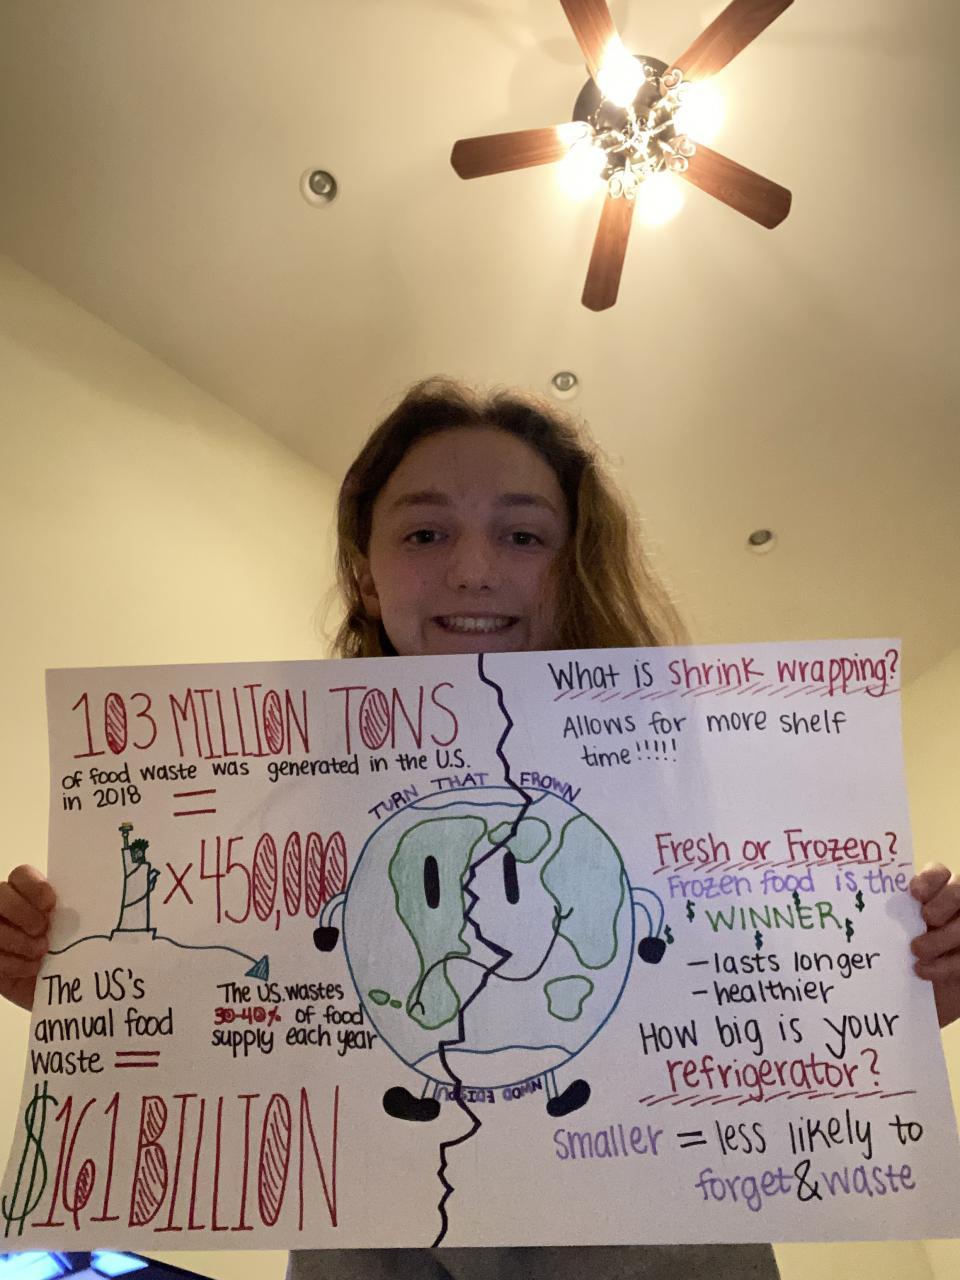 103 MILLION TONS
of food waste was generated in the U.S.
in 2018 =
x 450,000
The US's
annual food
waste =
$161 BILLION
The U.S. wastes
30-40% of food
supply each year
TURN THAT FROWN
UPSIDE DOWN
What is shrink wrapping?
Allows for more shelf
time!!!!!
Fresh or Frozen?
Frozen food is the
$ WINNER $
$ $ $
- lasts longer
- healthier
How big is your
refrigerator?
smaller = less likely to
forget & waste